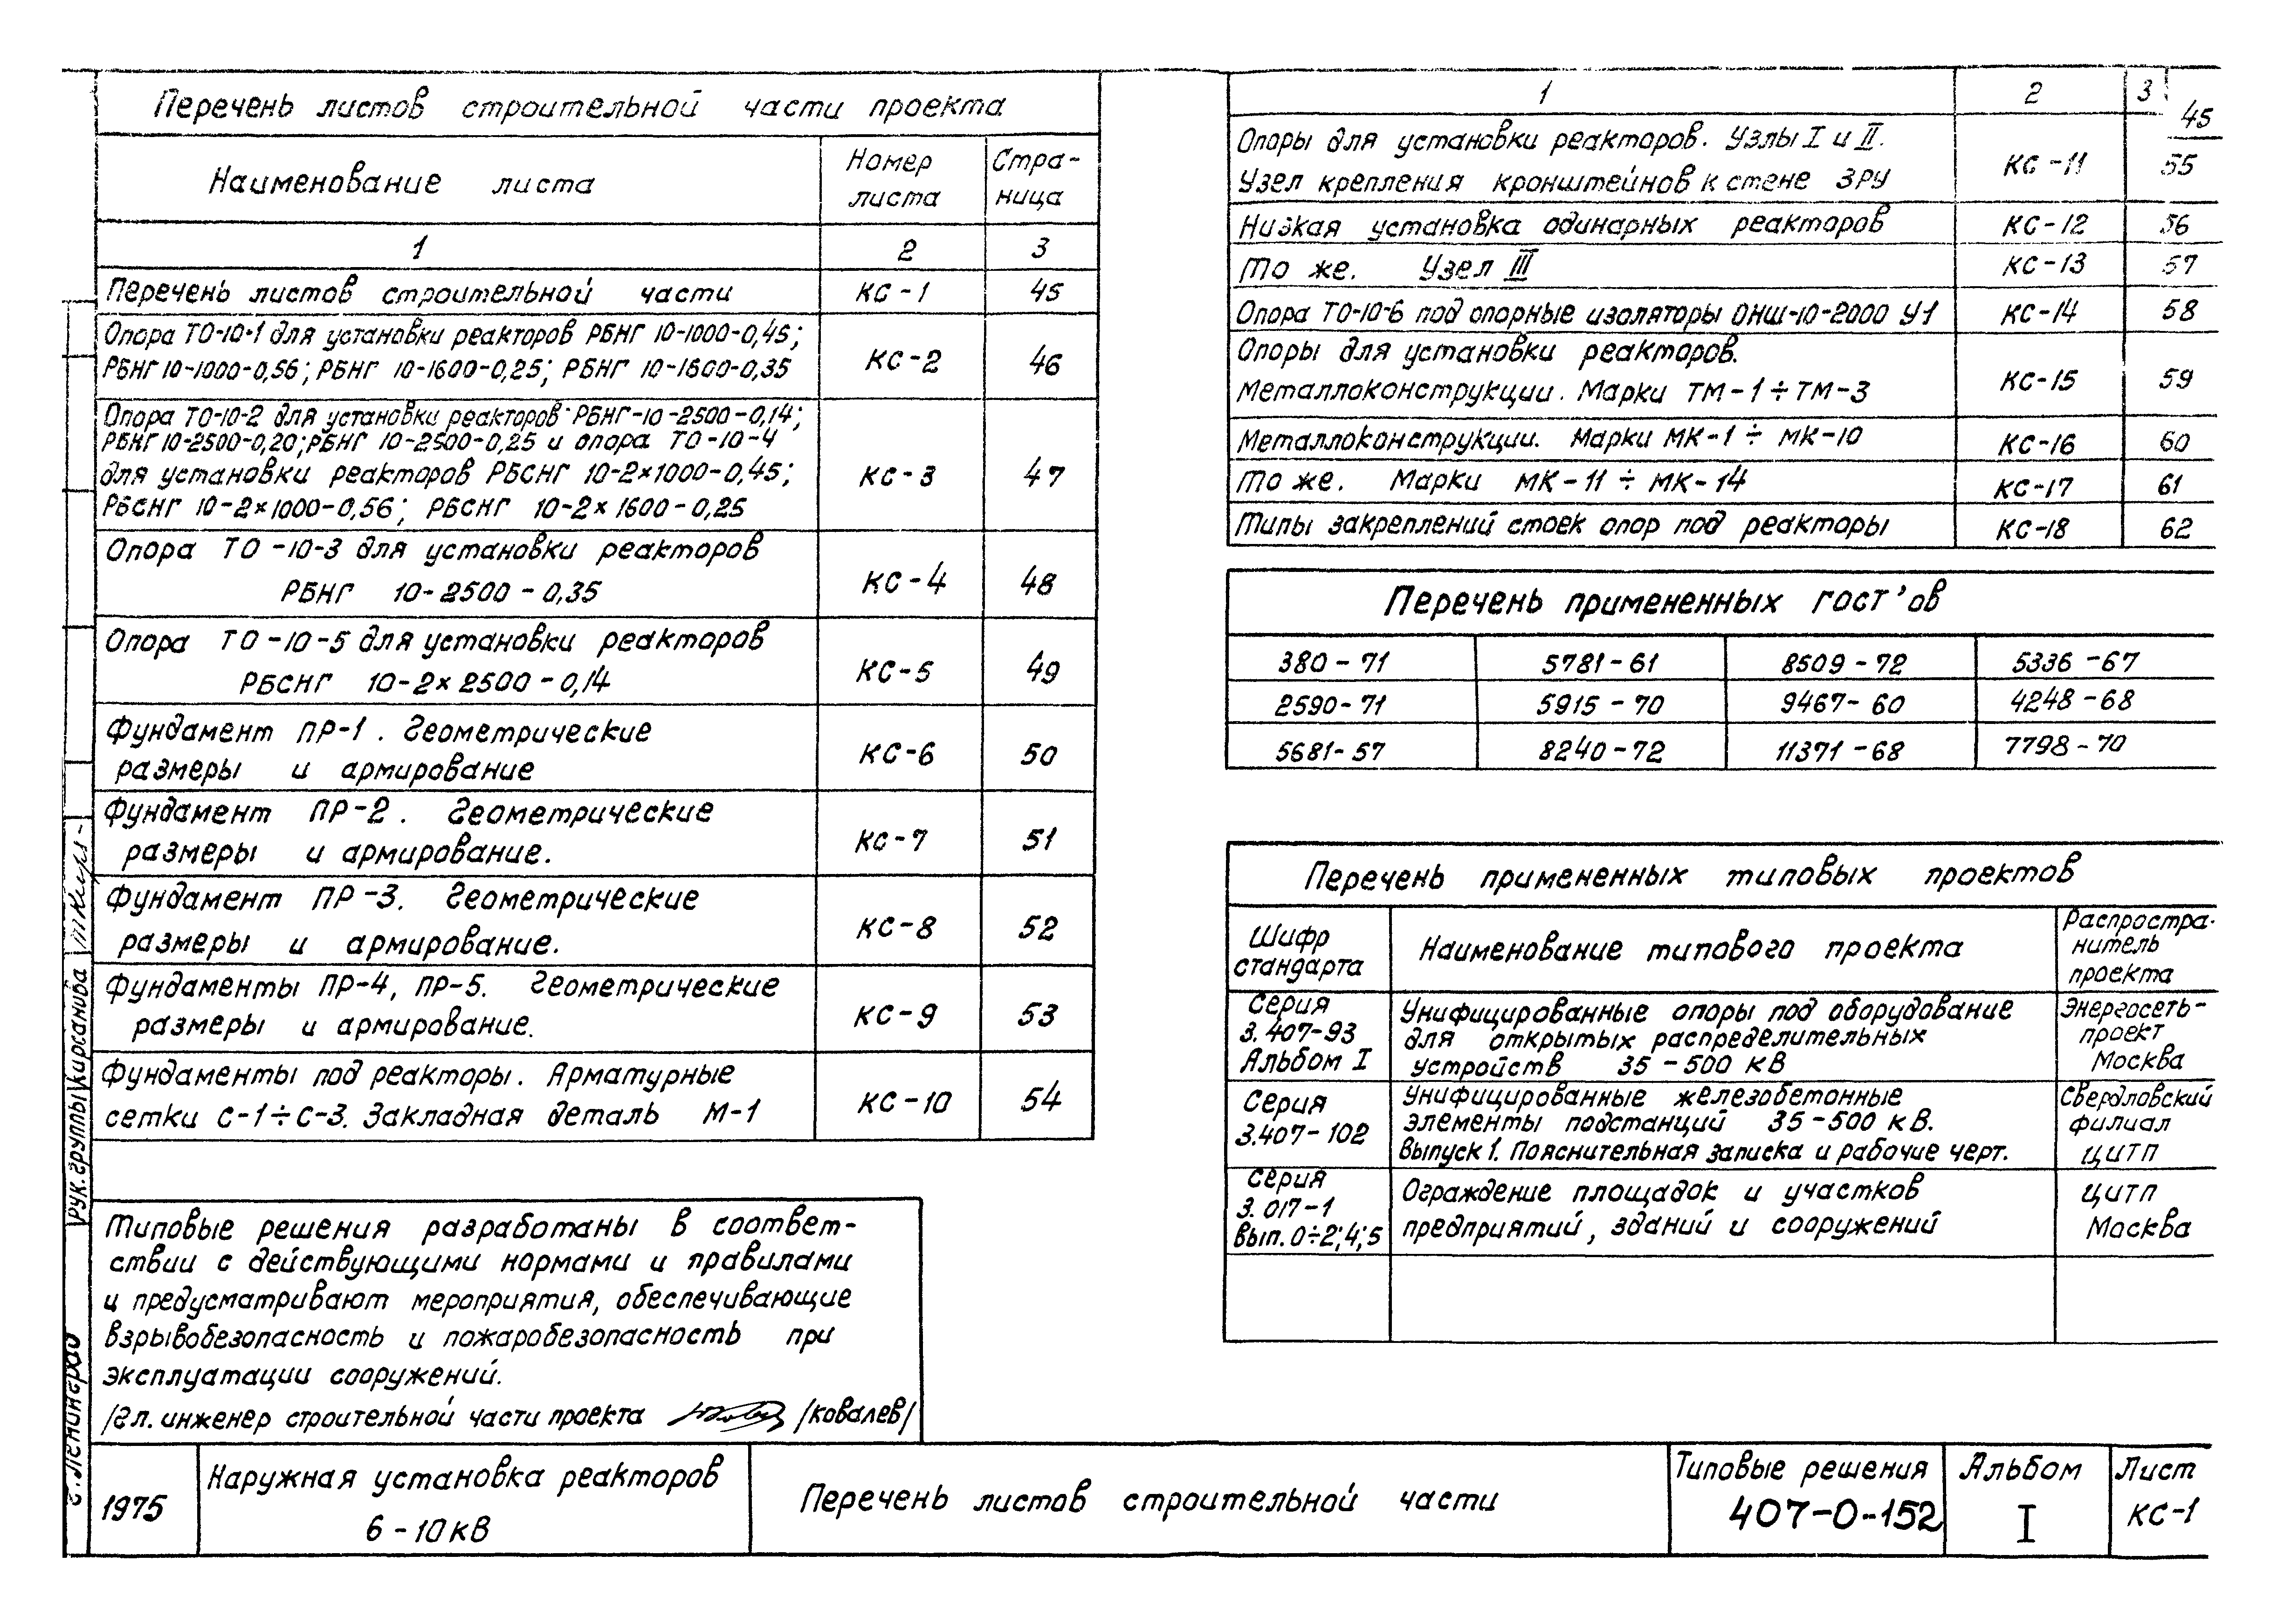 Перечень листов строительной части проекта
Наименование листа
Номер листа
Стра-ница
1 2 3
Перечень листов строительной части КС-1 45
Опора ТО-10-1 для установки реакторов РБНГ 10-1000-0,45;
РБНГ 10-1000-0,56; РБНГ 10-1600-0,25; РБНГ 10-1600-0,35 КС-2 46
Опора ТО-10-2 для установки реакторов РБНГ-10-2500-0,14;
РБНГ 10-2500-0,20; РБНГ 10-2500-0,25 и опора ТО-10-4
для установки реакторов РБСНГ 10-2×1000-0,45; КС-3 47
РБСНГ 10-2×1000-0,56; РБСНГ 10-2×1600-0,25
Опора ТО-10-3 для установки реакторов
РБНГ 10-2500-0,35 КС-4 48
Опора ТО-10-5 для установки реакторов
РБСНГ 10-2×2500-0,14 КС-5 49
Фундамент ПР-1. Геометрические
размеры и армирование КС-6 50
Фундамент ПР-2. Геометрические
размеры и армирование. КС-7 51
Фундамент ПР-3. Геометрические
размеры и армирование. КС-8 52
Фундаменты ПР-4, ПР-5. Геометрические
размеры и армирование. КС-9 53
Фундаменты под реакторы. Арматурные
сетки С-1÷С-3. Закладная деталь М-1 КС-10 54
Типовые решения разработаны в соответ-
ствии с действующими нормами и правилами
и предусматривают мероприятия, обеспечивающие
взрывобезопасность и пожаробезопасность при
эксплуатации сооружений.
/Гл. инженер строительной части проекта /Ковалев/
1 2 3
45
Опоры для установки реакторов. Узлы I и II.
Узел крепления кронштейнов к стене ЗРУ КС-11 55
Низкая установка одинарных реакторов КС-12 56
То же. Узел III КС-13 57
Опора ТО-10-6 под опорные изоляторы ОНШ-10-2000 У1 КС-14 58
Опоры для установки реакторов.
Металлоконструкции. Марки ТМ-1÷ТМ-3 КС-15 59
Металлоконструкции. Марки МК-1÷МК-10 КС-16 60
То же. Марки МК-11÷МК-14 КС-17 61
Типы закреплений стоек опор под реакторы КС-18 62
Перечень примененных ГОСТ'ов
380-71 5781-61 8509-72 5336-67
2590-71 5915-70 9467-60 4248-68
5681-57 8240-72 11371-68 7798-70
Перечень примененных типовых проектов
Шифр
стандарта
Наименование типового проекта
Распростра-
нитель
проекта
Серия
3.407-93
Альбом I
Унифицированные опоры под оборудование
для открытых распределительных
устройств 35-500 кВ
Энергосеть-
проект
Москва
Серия
3.407-102
Унифицированные железобетонные
элементы подстанций 35-500 кВ.
Выпуск 1. Пояснительная записка и рабочие черт.
Свердловский
филиал
ЦИТП
Серия
3.017-1
Вып. 0÷2;4;5
Ограждение площадок и участков
предприятий, зданий и сооружений
ЦИТП
Москва
Рук. группы Кирсанова
г. Ленинград
1975
Наружная установка реакторов
6-10 кВ
Перечень листов строительной части
Типовые решения
407-0-152
Альбом
I
Лист
КС-1